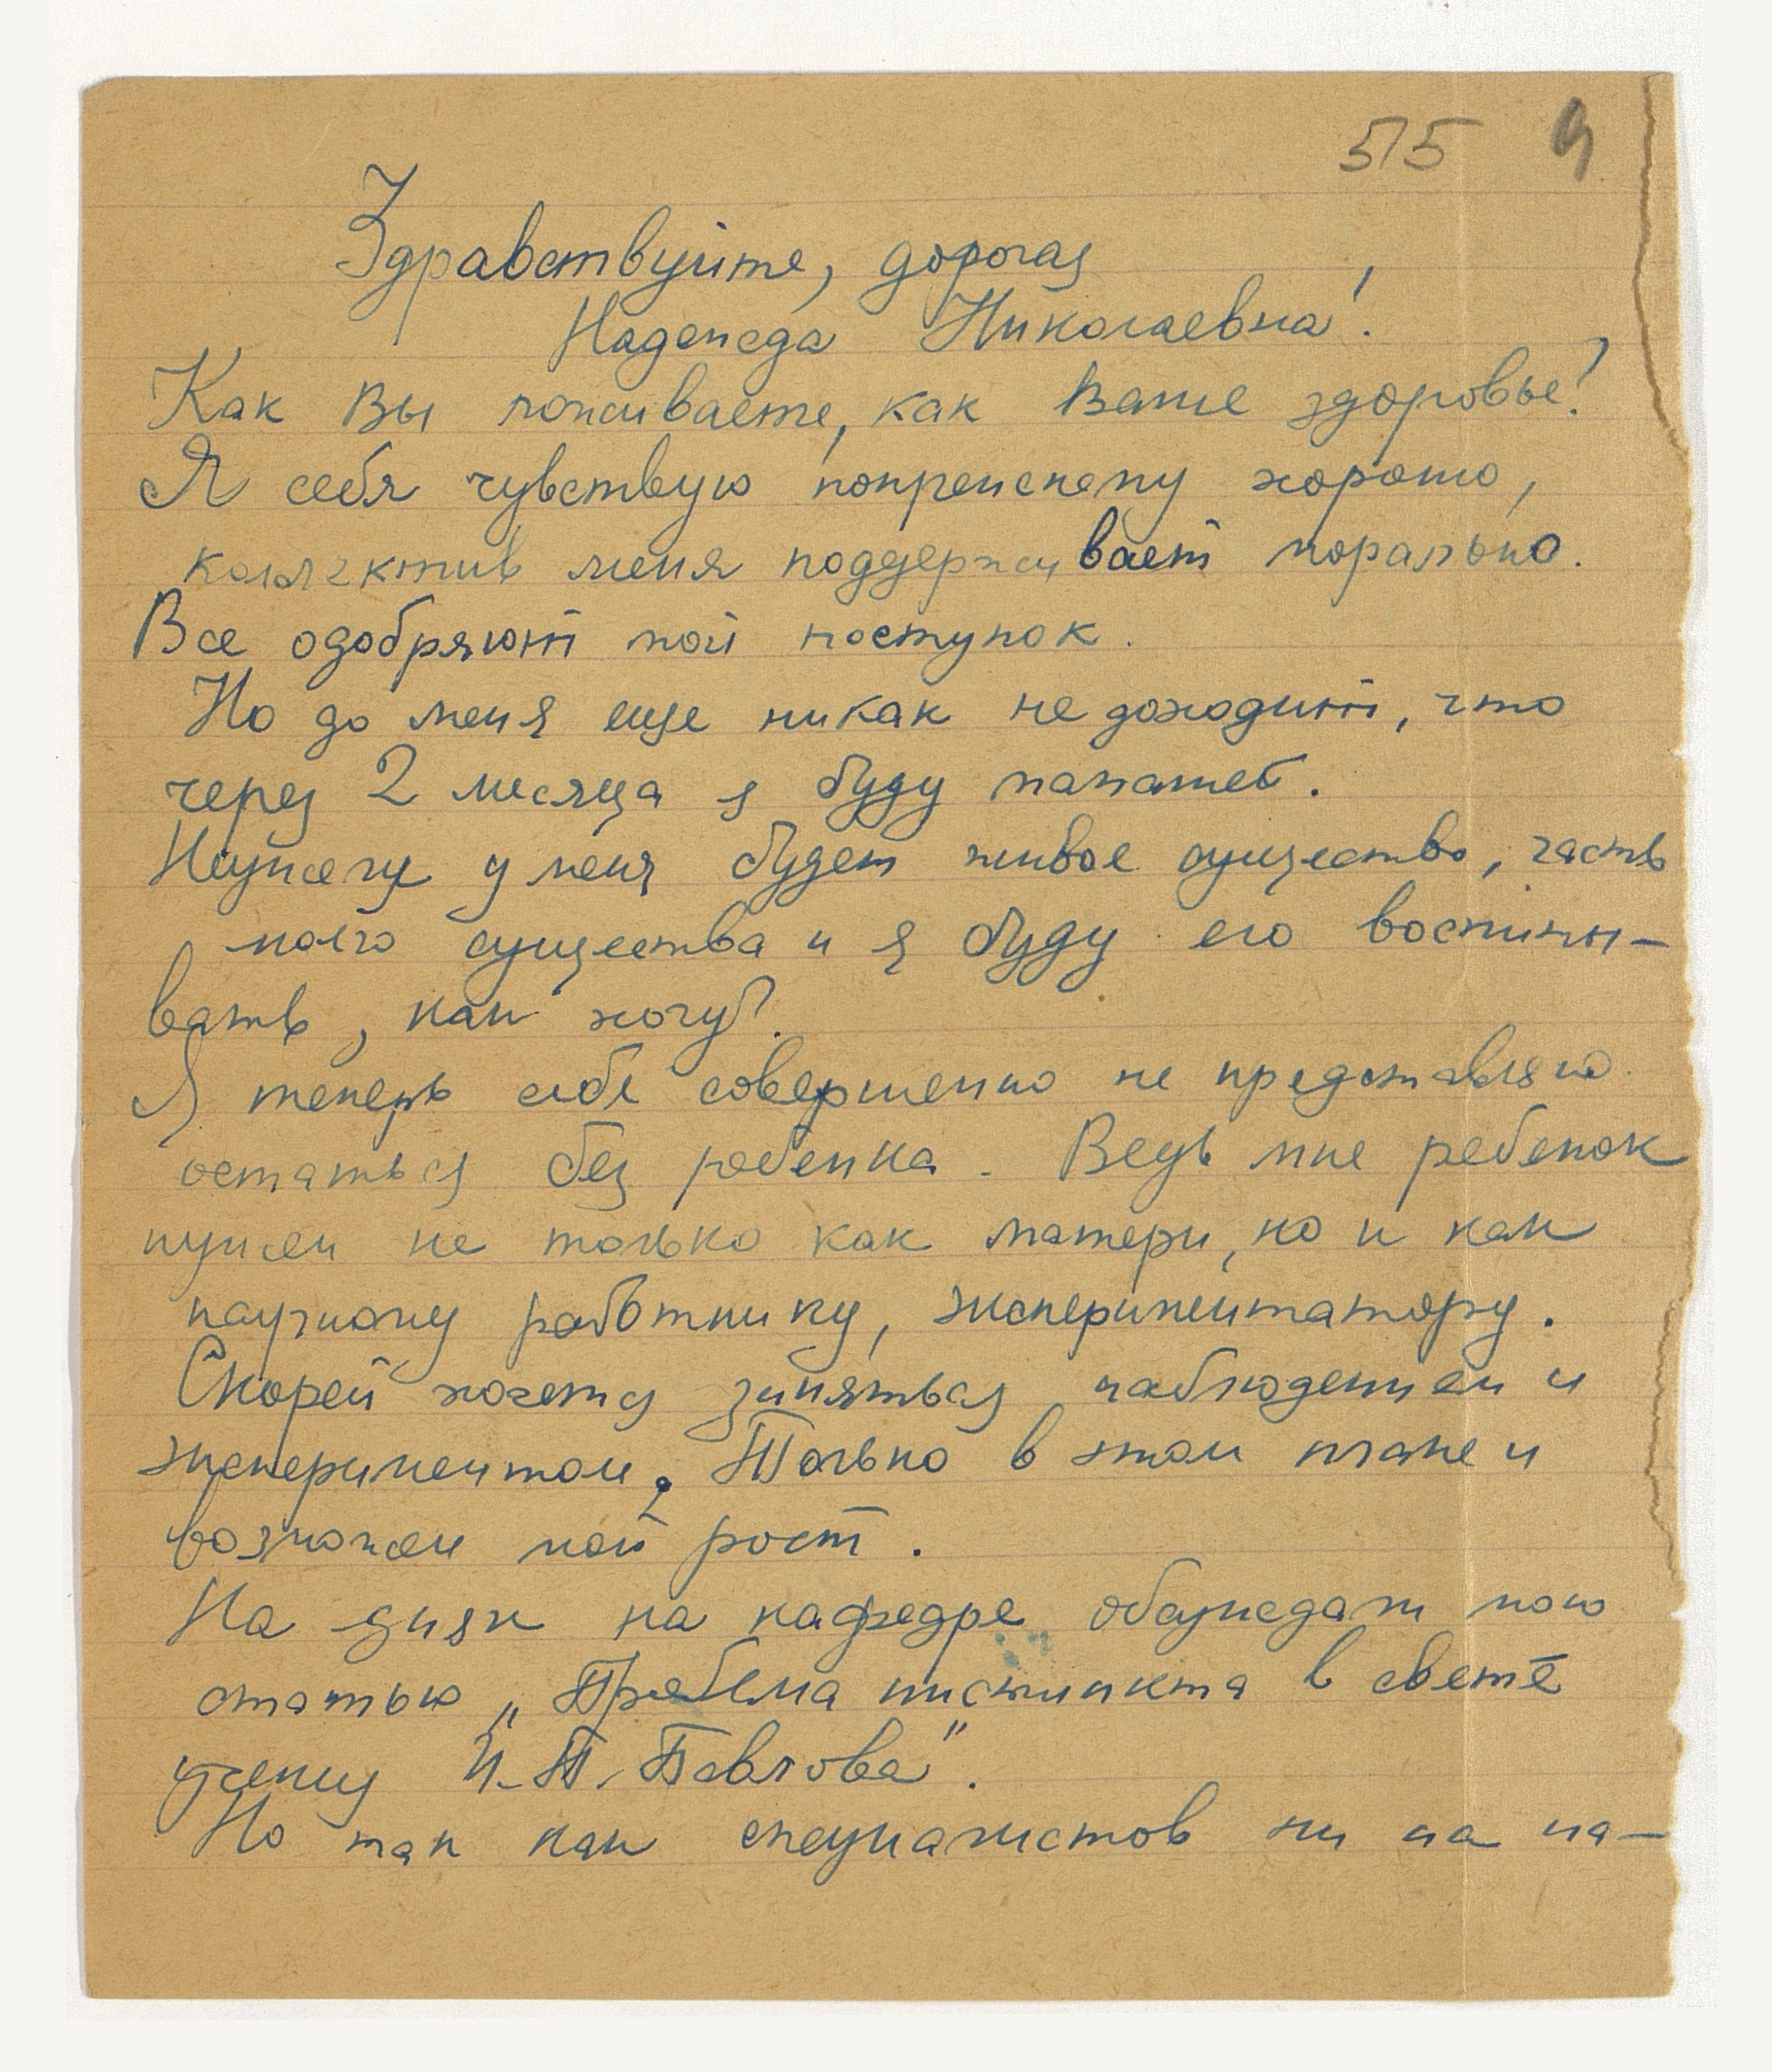 515 9
Здравствуйте, дорогая
Надежда Николаевна!
Как Вы поживаете, как Ваше здоровье?
Я себя чувствую попрежнему хорошо,
коллектив меня поддерживает морально.
Все одобряют мой поступок.
Но до меня еще никак не доходит, что
через 2 месяца я буду мамашей.
Неужели у меня будет живое существо, часть
моего существа и я буду его воспиты-
вать, как хочу?
Я теперь себе совершенно не представляю
остаться без ребенка. Ведь мне ребенок
нужен не только как матери, но и как
научному работнику, экспериментатору.
Скорей хочется заняться наблюдением и
экспериментом. Только в этом плане и
возможен мой рост.
На днях на кафедре обсуждали мою
статью „Проблема инстинкта в свете
учения И. П. Павлова".
Но так как специалистов ни на ка-